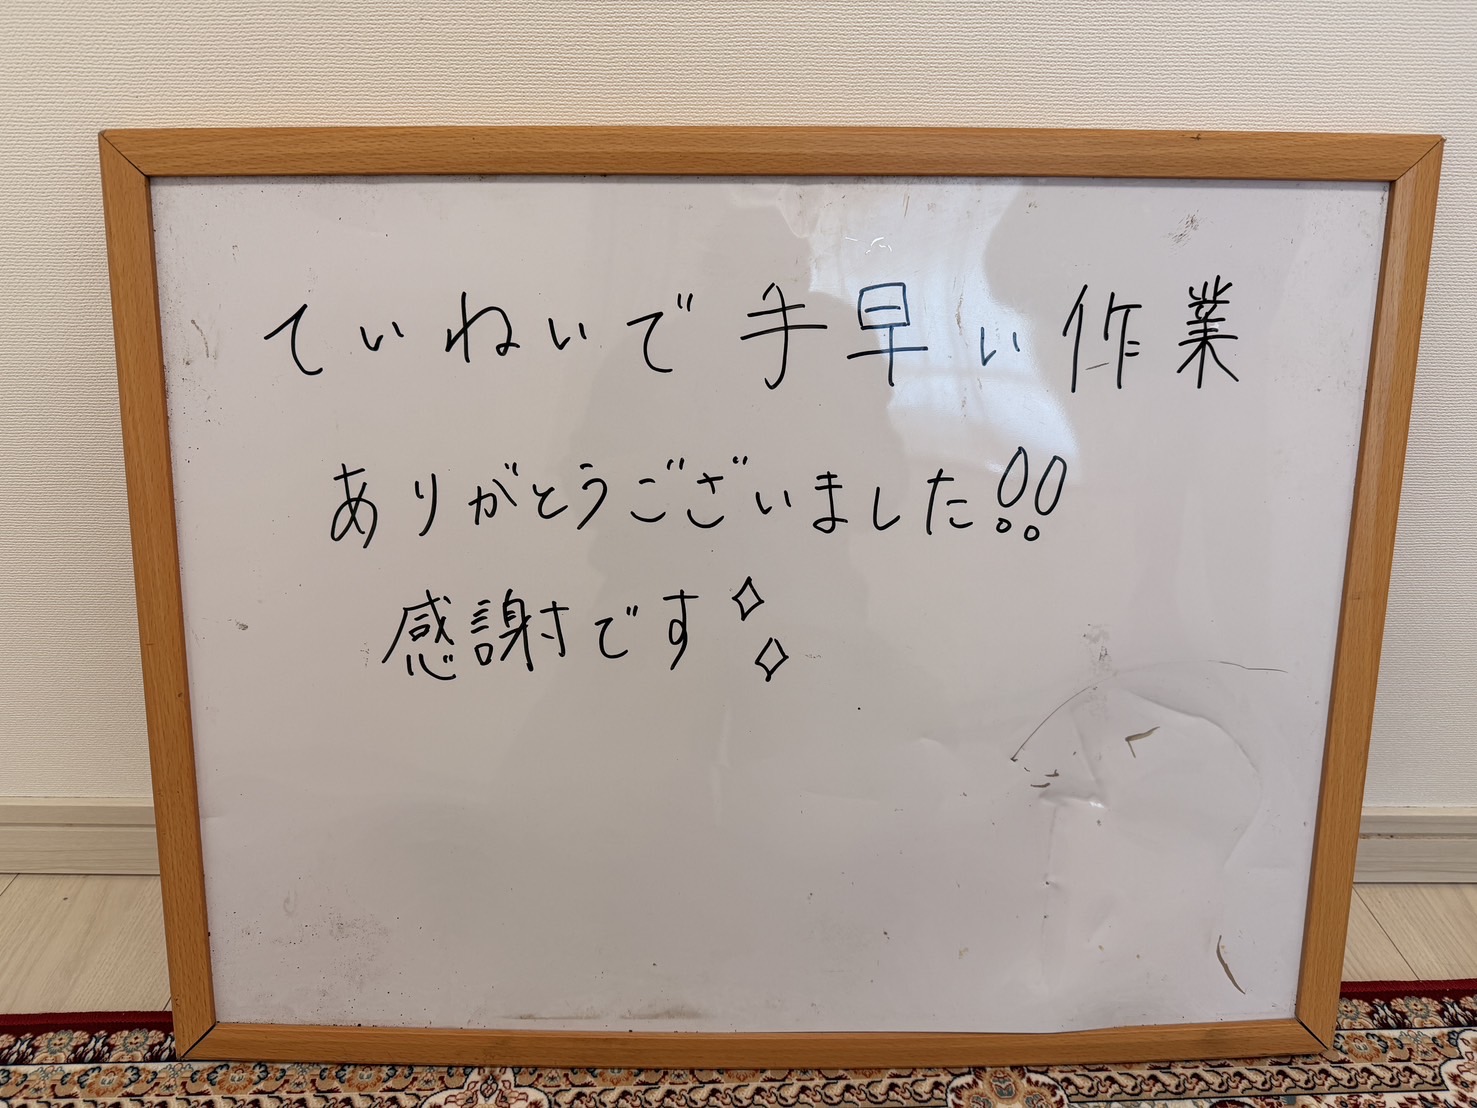 ていねいで手早い作業
ありがとうございました!!
感謝です✧✧